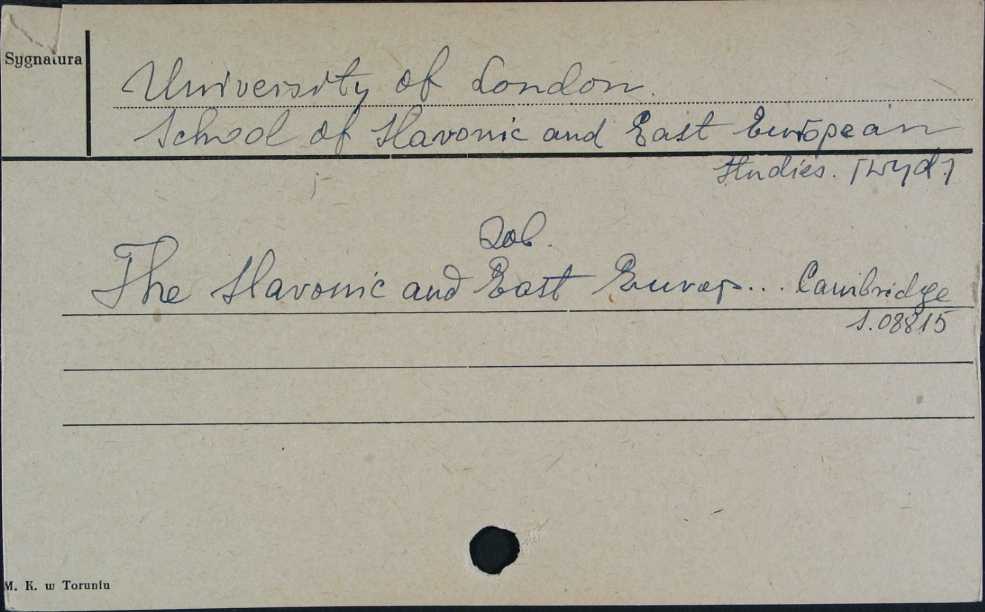 Sygnatura
University of London.
School of Slavonic and East European
Studies. [wyd.]
Zob.
The Slavonic and East Europ... Cambridge
S.08815
M. K. w Toruniu